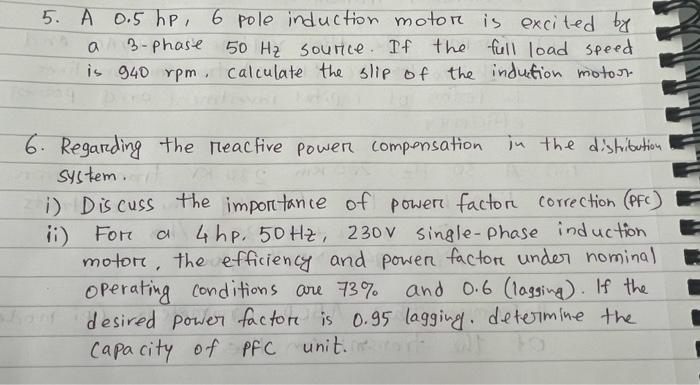 5. A 0.5 hp, 6 pole induction motor is excited by
a 3-phase 50 Hz source. If the full load speed
is 940 rpm, calculate the slip of the induction motoor
6. Regarding the reactive power compensation in the distribution
system.
i) Discuss the importance of power factor correction (PFC)
ii) For a 4 hp, 50 Hz, 230 V single-phase induction
motor, the efficiency and power factor under nominal
operating conditions are 73% and 0.6 (lagging). If the
desired power factor is 0.95 lagging. determine the
capacity of PFC unit.